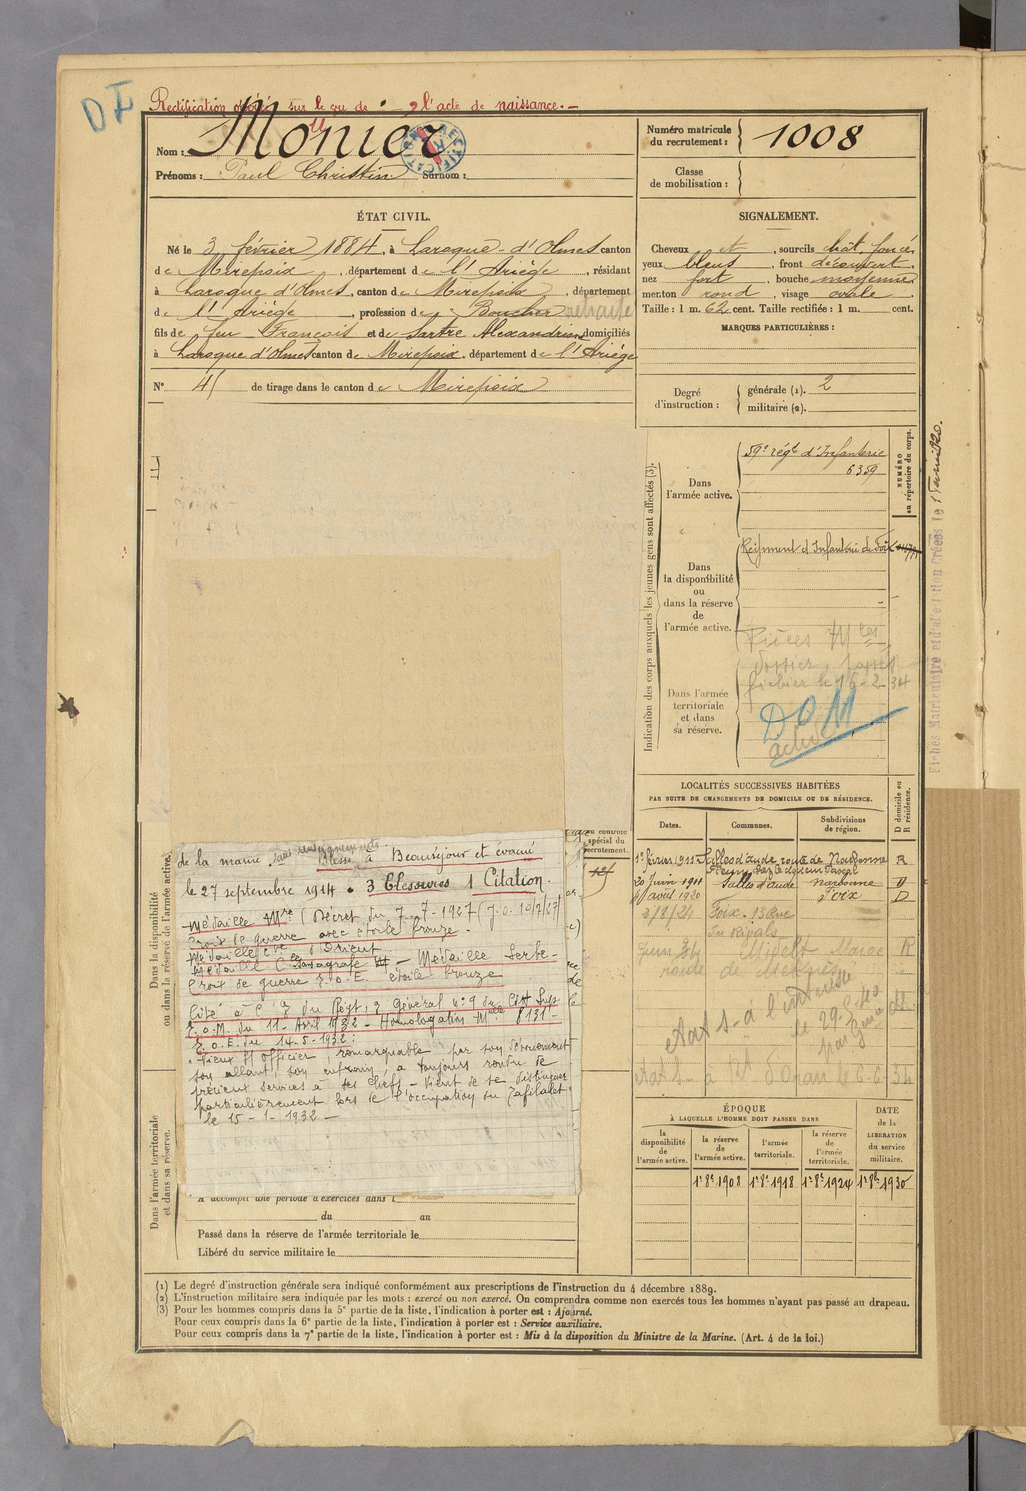 D I
Rectification opérée sur le vu de l'acte de naissance.
Nom : Monier
Prénoms : Paul Christin Surnom :
Numéro matricule du recrutement : 1008
Classe de mobilisation :
ÉTAT CIVIL.
Né le 3 février 1884, à Laroque-d'Olmes canton
de Mirepoix, département de l'Ariège, résidant
à Laroque d'Olmes, canton de Mirepoix, département
de l'Ariège, profession de Boucher retraité
fils de feu François et de Sartre Alexandrine domiciliés
à Laroque d'Olmes canton de Mirepoix, département de l'Ariège
N° 45 de tirage dans le canton de Mirepoix
SIGNALEMENT.
Cheveux et, sourcils chât. foncé,
yeux bleus, front découvert,
nez fort, bouche moyenne
menton rond, visage ovale.
Taille : 1 m. 62 cent. Taille rectifiée : 1 m. cent.
MARQUES PARTICULIÈRES :
Degré d'instruction :
générale (1). 2
militaire (2).
Indication des corps auxquels les jeunes gens sont affectés (3).
NUMÉRO au répertoire du corps.
Dans l'armée active.
59e régt d'Infanterie
6359
Dans la disponibilité ou dans la réserve de l'armée active.
Régiment d'Infanterie de Foix
Pièces Mles
dossier
fichier le 16-2-34
Dans l'armée territoriale et dans sa réserve.
DOM
Fiches Matriculaire et d'affectation Créées le
LOCALITÉS SUCCESSIVES HABITÉES
PAR SUITE DE CHANGEMENTS DE DOMICILE OU DE RÉSIDENCE.
Dates.
Communes.
Subdivisions de région.
D domicile ou R résidence.
1er février 1911 Salles d'aude, route de Narbonne R
Fleury
20 Juin 1911 Salles d'aude Narbonne D
avril 1920 Foix D
2/8/24 Foix - 13 Rue
du Rivals
Juin 34 Midelt Maroc R
route de Meknès
états - à l'intérieur
le 29-5-40
états - à Rt d'Oran le 6-6-34
ÉPOQUE
À LAQUELLE L'HOMME DOIT PASSER DANS
DATE de la LIBÉRATION du service militaire.
la disponibilité de l'armée active.
la réserve de l'armée active.
l'armée territoriale.
la réserve de l'armée territoriale.
1er 8bre 1908
1er 8bre 1918
1er 8bre 1924
1er 8bre 1930
au contrôle spécial du recrutement.
Dans la disponibilité ou dans la réserve de l'armée active.
Dans l'armée territoriale et dans sa réserve.
de la marne, sans renseignements. Blessé à Beauséjour et évacué
le 27 septembre 1914. 3 Blessures 1 Citation.
Médaille Mre (Décret du 7-7-1927 (J.O. 10/7/27)
Croix de guerre avec étoile bronze.
Médaille Cve d'Orient
Médaille Cle - Médaille Serbe -
Croix de guerre T.O.E. étoile bronze
Cité à l'O. du Régt, O. Général n° 9 du Ct Sup.
T.O.M. du 11 Avril 1932 - Homologation Melle 8131 -
T.O.E. du 14-5-1932 :
"Vieux S/ Officier, remarquable par son dévouement
son allant, son entrain, a toujours rendu de
précieux services à ses chefs - Vient de se distinguer
particulièrement lors de l'occupation du Tafilalet
le 15-1-1932 -
A accompli une période d'exercices dans l
du au
Passé dans la réserve de l'armée territoriale le
Libéré du service militaire le
(1) Le degré d'instruction générale sera indiqué conformément aux prescriptions de l'instruction du 4 décembre 1889.
(2) L'instruction militaire sera indiquée par les mots : exercé ou non exercé. On comprendra comme non exercés tous les hommes n'ayant pas passé au drapeau.
(3) Pour les hommes compris dans la 5e partie de la liste, l'indication à porter est : Ajourné.
Pour ceux compris dans la 6e partie de la liste, l'indication à porter est : Service auxiliaire.
Pour ceux compris dans la 7e partie de la liste, l'indication à porter est : Mis à la disposition du Ministre de la Marine. (Art. 4 de la loi.)